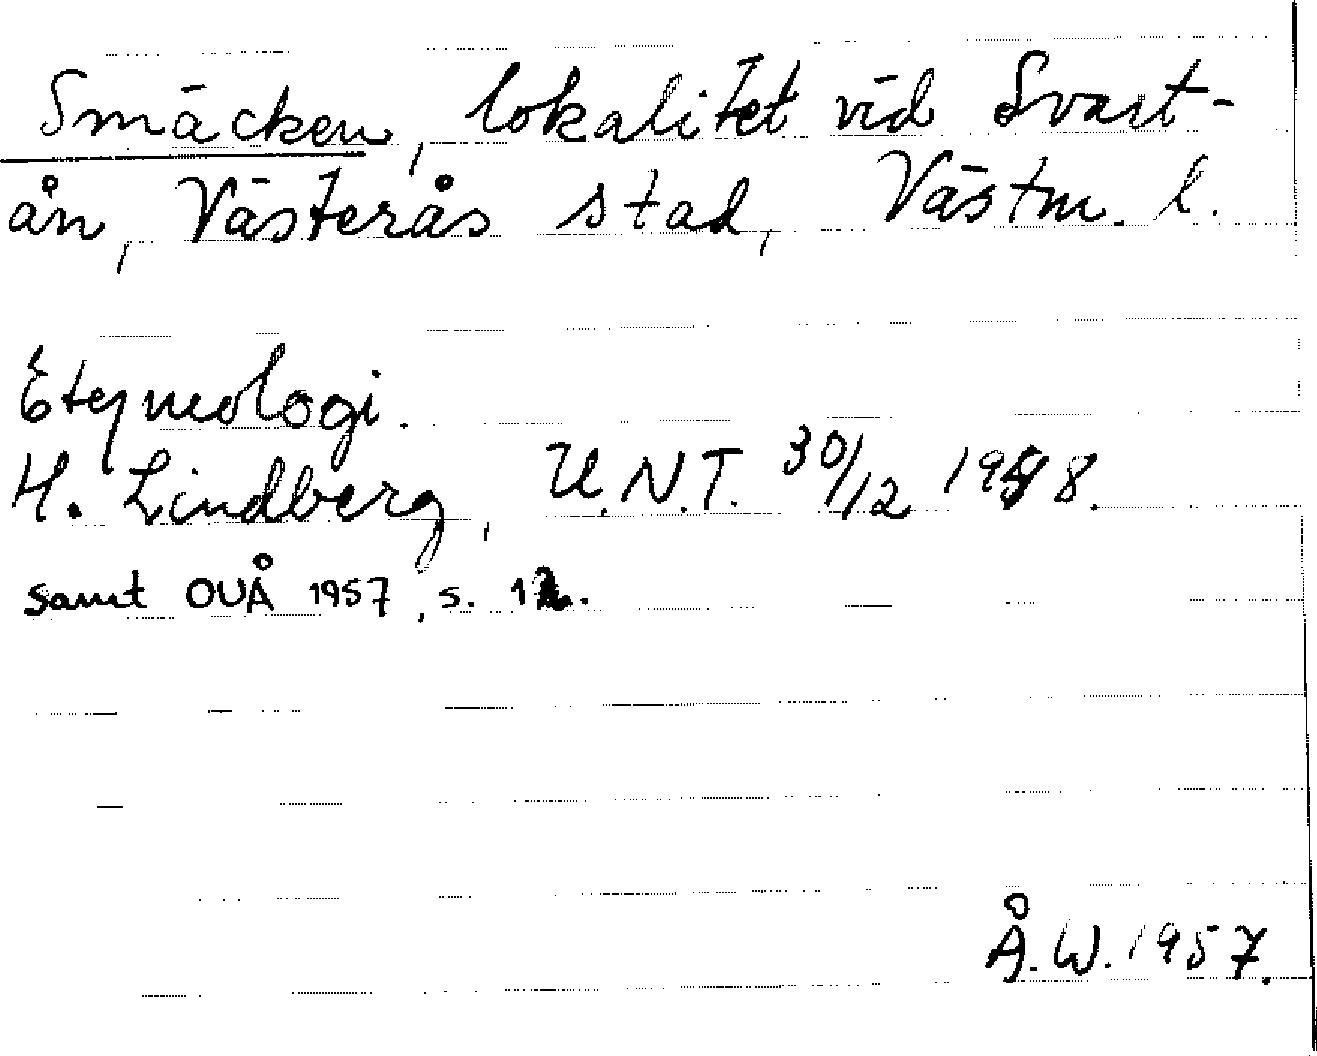 Smäcken, lokalitet vid Svart-
ån, Västerås stad, Västm. l.
Etymologi.
H. Lindberg, U.N.T. 30/12 1948.
samt OUÅ 1957, s. 12.
Å.W. 1957.